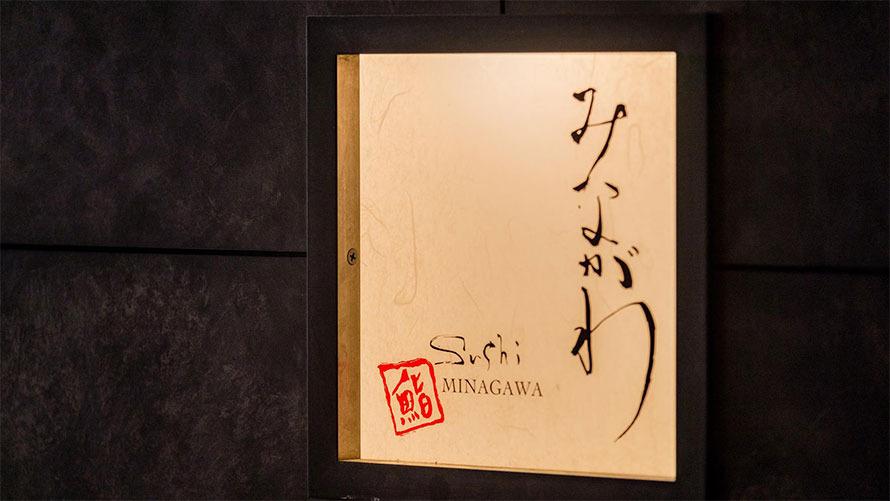 みながわ
Sushi
MINAGAWA
鮨